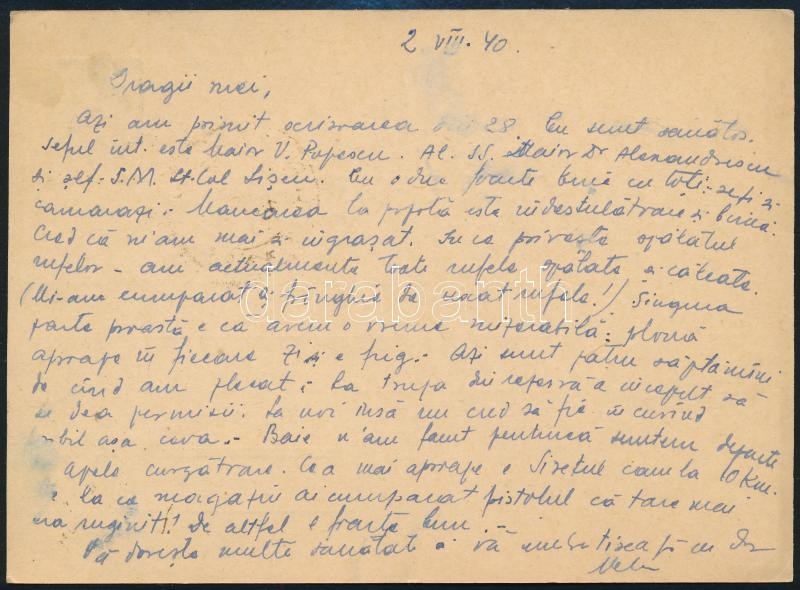 2 VIII. 40.
Dragii mei,
Azi am primit scrisoarea din 28 Eu sunt sănătos.
Șeful int. este Maior V. Popescu. Al. S.S. Maior Dr Alexandrescu
și șef. S.M. Lt. Col Lișcu. Eu o duc foarte bine cu toți: șefi și
camarazi.- Mâncarea la popotă este îndestulătoare și bună.
Cred că m'am mai și îngrașat. În ce privește spălatul
rufelor - am actualmente toate rufele spălate și călcate.
(Mi-am cumparat și frînghie de uscat rufele!) Singura
parte proastă e că avem o vreme mizerabilă: plouă
aproape în fiecare zi și e frig.- Azi sunt patru săptămîni
de cînd am plecat. La trupă din rezervă a început să
se dea permisii. La noi însă nu cred să fie în curînd
așa ceva.- Baie n'am făcut pentrucă suntem departe
Apele curgătoare. Cea mai aproape e Siretul cam la 10 Km.
la ce magazie ai cumparat pistolul că tare mai
era ruginit! De altfel e foarte bun.-
Vă dorește multă sanătate și vă îmbrățișează cu dor
darabanth